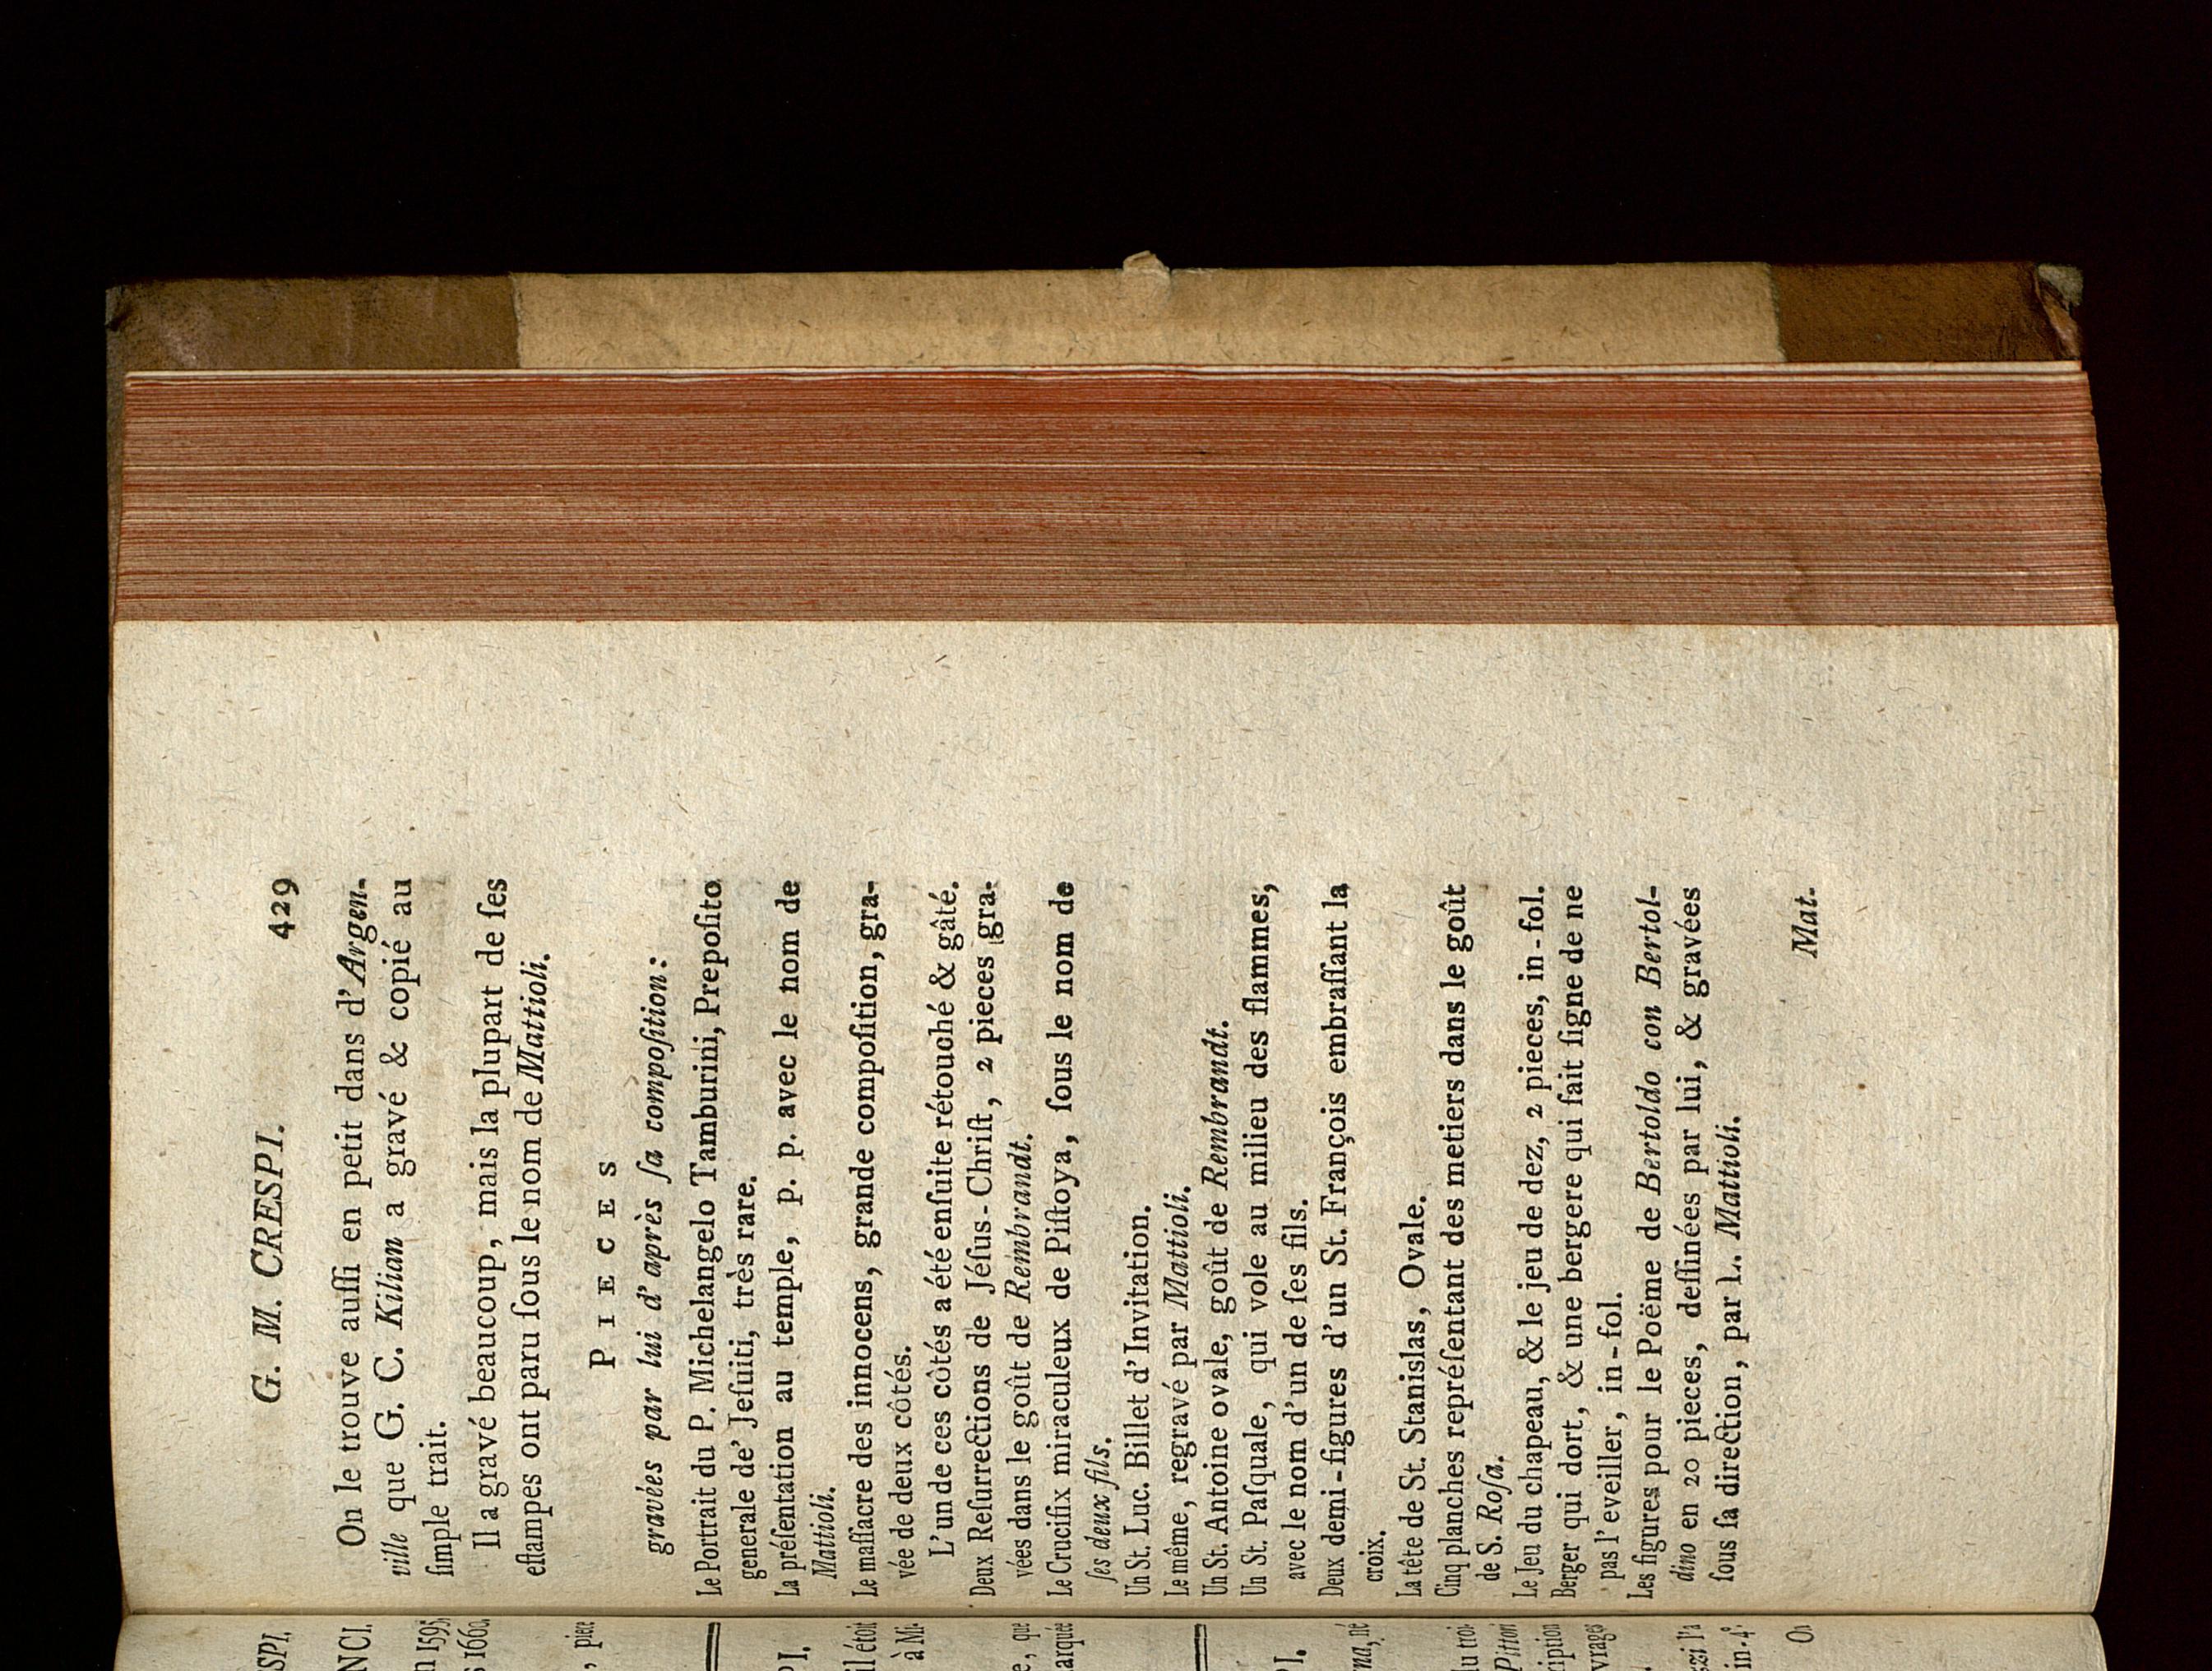 G. M. CRESPI. 429
On le trouve auſſi en petit dans d'Argen-
ville que G. C. Kilian a gravé & copié au
ſimple trait.
Il a gravé beaucoup, mais la plupart de ſes
eſtampes ont paru ſous le nom de Mattioli.
PIECES
gravées par lui d'après ſa compoſition:
Le Portrait du P. Michelangelo Tamburini, Prepoſito
generale de' Jeſuiti, très rare.
La préſentation au temple, p. p. avec le nom de
Mattioli.
Le maſſacre des innocens, grande compoſition, gra-
vée de deux côtés.
L'un de ces côtés a été enſuite rétouché & gâté.
Deux Reſurrections de Jéſus-Chriſt, 2 pieces gra-
vées dans le goût de Rembrandt.
Le Crucifix miraculeux de Piſtoya, ſous le nom de
ſes deux fils.
Un St. Luc. Billet d'Invitation.
Le même, regravé par Mattioli.
Un St. Antoine ovale, goût de Rembrandt.
Un St. Paſquale, qui vole au milieu des flammes,
avec le nom d'un de ſes fils.
Deux demi-figures d'un St. François embraſſant la
croix.
La tête de St. Stanislas, Ovale.
Cinq planches repréſentant des metiers dans le goût
de S. Roſa.
Le Jeu du chapeau, & le jeu de dez, 2 pieces, in-fol.
Berger qui dort, & une bergere qui fait ſigne de ne
pas l'eveiller, in-fol.
Les figures pour le Poëme de Bertoldo con Bertol-
dino en 20 pieces, deſſinées par lui, & gravées
ſous ſa direction, par L. Mattioli.
Mat.
SPI.
NCI.
n 1595.
s 1660.
, piece
PI.
il étoit
à Mi-
e, que
arqué
PI.
na, né
du troi-
Pittori
ription
vrages
in-4°.
On